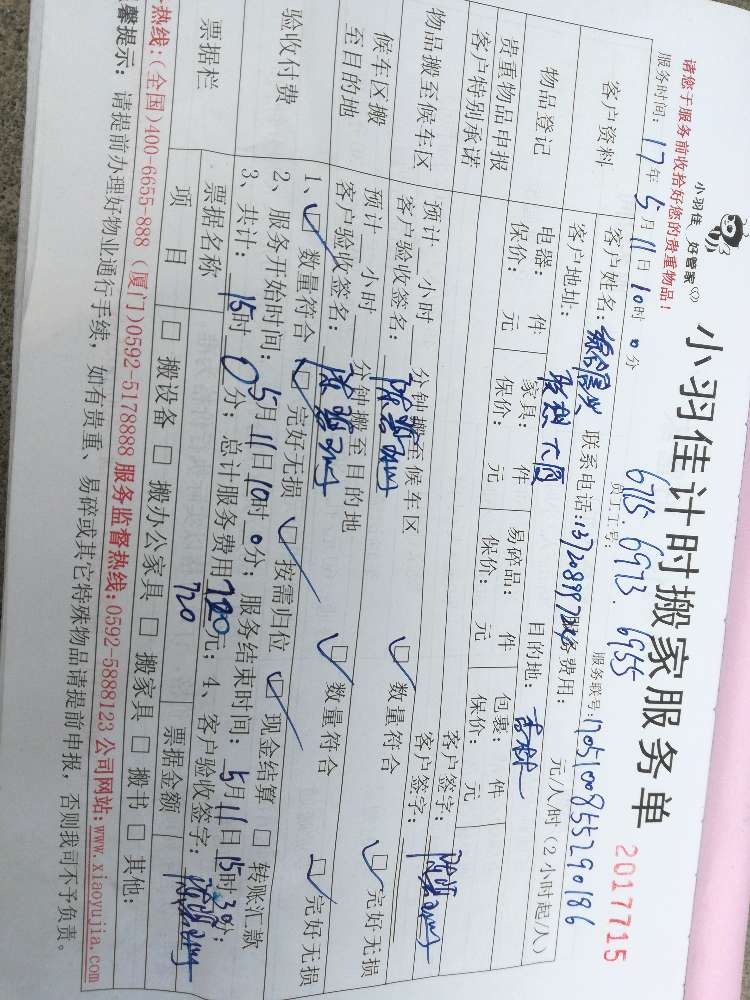 小羽佳 好管家
小羽佳计时搬家服务单
2017715
请您于服务前收拾好您的贵重物品!
员工工号: 6715 6973. 6955
服务联号:
服务时间: 17年5月11日10时0分
客户资料
客户姓名: 联系电话: 服务费用: 元/人/时(2小时起/人)
客户地址: 目的地:
物品登记
电器: 件 家具: 件 易碎品: 件 包裹: 件
贵重物品申报
保价: 元 保价: 元 保价: 元 保价: 元
客户特别承诺
客户签字:
物品搬至候车区
预计 小时 分钟搬至候车区 客户签字:
客户验收签名: 数量符合 完好无损
候车区搬至目的地
预计 小时 分钟搬至目的地
客户验收签名: 数量符合 完好无损
验收付费
1、 数量符合 完好无损 按需归位 现金结算 转账汇款
2、服务开始时间: 5月11日10时0分; 服务结束时间: 5月11日15时30分;
3、共计: 15时0分; 总计服务费用720元; 4、客户验收签字:
票据栏
票据名称 720 票据金额
项目 搬设备 搬办公家具 搬家具 搬书 其他:
热线:(全国)400-6655-888 (厦门)0592-5178888 服务监督热线:0592-5888123 公司网站:www.xiaoyujia.com
馨提示: 请提前办理好物业通行手续,如有贵重、易碎或其它特殊物品请提前申报,否则我司不予负责。